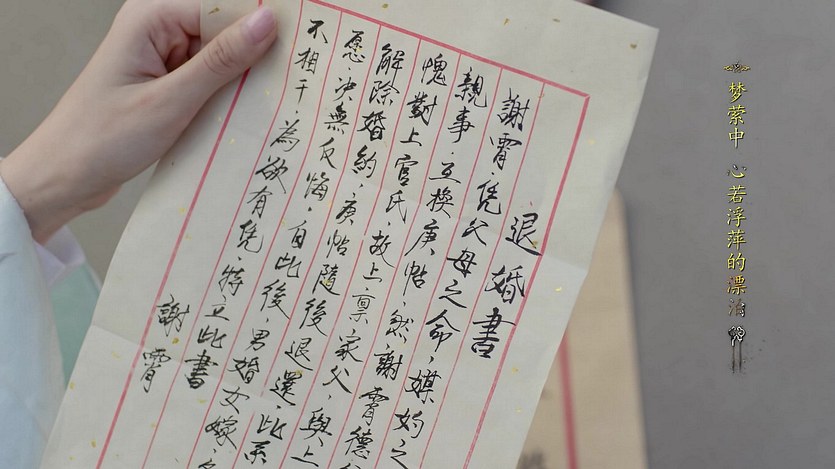 梦萦中 心若浮萍的漂泊
退婚書
謝霄,凭父母之命,媒妁之
親事,互換庚帖,然謝霄德
愧對上官氏,故上禀家父,與上
解除婚約,庚帖隨後退還,此系
愿,决無反悔,自此後,男婚女嫁,
不相干,為欲有凭,特立此書
謝霄